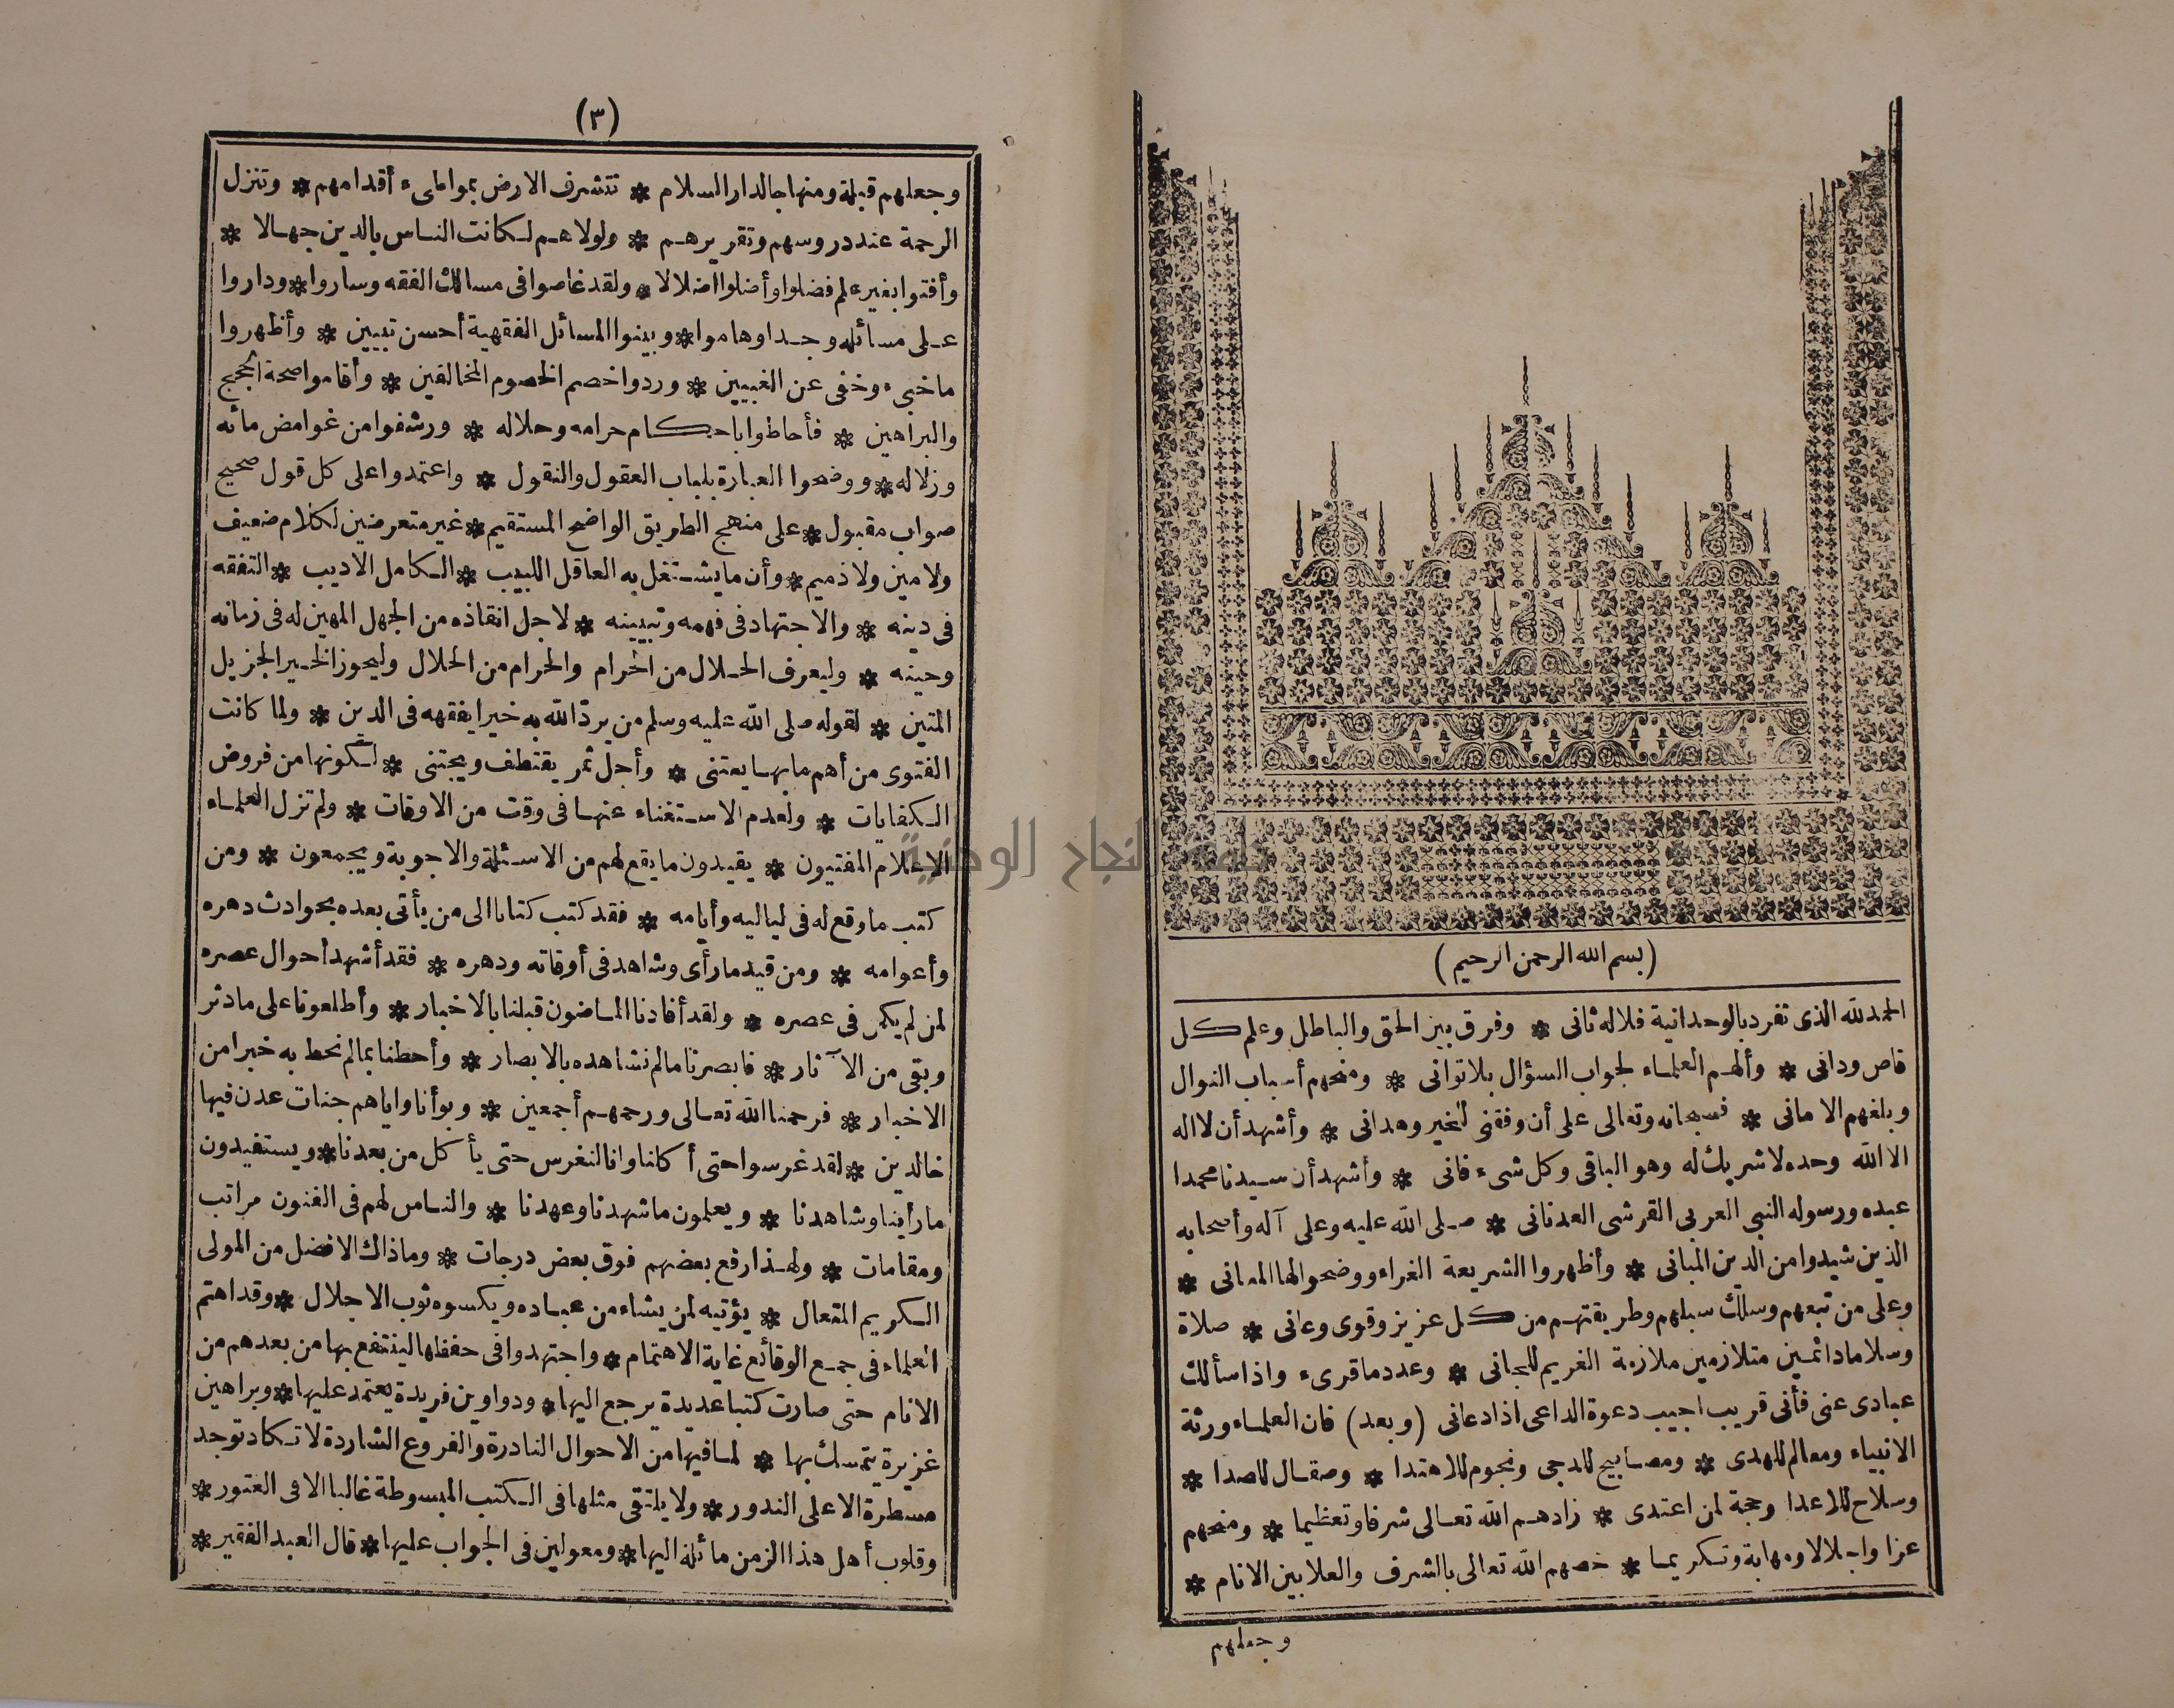 (بسم الله الرحمن الرحيم)
الحمد لله الذى تفرد بالوحدانية فلا له ثانى * وفرق بين الحق والباطل وعلم كل
قاص ودانى * وألهم العلماء لجواب السؤال بلا توانى * ومنحهم أسباب النوال
وبلغهم الامانى * فسبحانه وتعالى على أن وفقنى للخير وهدانى * وأشهد أن لا اله
الا الله وحده لا شريك له وهو الباقى وكل شىء فانى * وأشهد أن سيدنا محمدا
عبده ورسوله النبى العربى القرشى العدنانى * صلى الله عليه وعلى آله وأصحابه
الذين شيدوا من الدين المبانى * وأظهروا الشريعة الغراء ووضحوا لها المعانى *
وعلى من تبعهم وسلك سبلهم وطريقتهم من كل عزيز وقوى وعانى * صلاة
وسلاما دائمين متلازمين ملازمة الغريم للجانى * وعدد ما قرىء واذا سألك
عبادى عنى فأنى قريب اجيب دعوة الداعى اذا دعانى (وبعد) فان العلماء ورثة
الانبياء ومعالم للهدى * ومصابيح للدجى ونجوم للاهتدا * وصقال للصدا *
وسلاح للاعدا وحجة لمن اعتدى * زادهم الله تعالى شرفا وتعظيما * ومنحهم
عزا واجلالا ومهابة وتكريما * خصهم الله تعالى بالشرف والعلا بين الانام *
وجعلهم
(٣)
وجعلهم قبلة ومنهاجا لدار السلام * تتشرف الارض بمواطىء أقدامهم * وتنزل
الرحمة عند دروسهم وتقريرهم * ولولاهم لكانت الناس بالدين جهالا *
وأفتوا بغير علم فضلوا وأضلوا اضلالا * ولقد غاصوا فى مسالك الفقه وساروا * وداروا
على مسائله وجداوهاموا * وبينوا المسائل الفقهية أحسن تبيين * وأظهروا
ما خبىء وخفى عن الغبيين * وردوا خصم الخصوم المخالفين * وأقاموا صحة الحجج
والبراهين * فأحاطوا باحكام حرامه وحلاله * ورشفوا من غوامض مائه
وزلاله * ووضحوا العبارة بلباب العقول والنقول * واعتمدوا على كل قول صحيح
صواب مقبول * على منهج الطريق الواضح المستقيم * غير متعرضين لكلام ضعيف
ولا مين ولا ذميم * وأن ما يشتغل به العاقل اللبيب * الكامل الاديب * التفقه
فى دينه * والاجتهاد فى فهمه وتبيينه * لاجل انقاذه من الجهل المهين له فى زمانه
وحينه * وليعرف الحلال من الحرام والحرام من الحلال وليحوز الخير الجزيل
المتين * لقوله صلى الله عليه وسلم من يرد الله به خيرا يفقهه فى الدين * ولما كانت
الفتوى من أهم ما بها يعتنى * وأجل ثمر يقتطف ويجتنى * لكونها من فروض
الكفايات * ولعدم الاستغناء عنها فى وقت من الاوقات * ولم تزل العلماء
الاعلام المفتيون * يقيدون ما يقع لهم من الاسئلة والاجوبة ويجمعون * ومن
كتب ما وقع له فى لياليه وأيامه * فقد كتب كتابا الى من يأتى بعده بحوادث دهره
وأعوامه * ومن قيد ما رأى وشاهد فى أوقاته ودهره * فقد أشهد أحوال عصره
لمن لم يكن فى عصره * ولقد أفادنا الماضون قبلنا بالاخبار * وأطلعونا على ما دثر
وبقى من الآثار * فابصرنا ما لم نشاهده بالابصار * وأحطنا بما لم نحط به خبرا من
الاخبار * فرحمنا الله تعالى ورحمهم أجمعين * وبوأنا واياهم جنات عدن فيها
خالدين * لقد غرسوا حتى أكلنا وانا لنغرس حتى يأكل من بعدنا * ويستفيدون
ما رأينا وشاهدنا * ويعلمون ما شهدنا وعهدنا * والناس لهم فى الفنون مراتب
ومقامات * ولهذا رفع بعضهم فوق بعض درجات * وما ذاك الا فضل من المولى
الكريم المتعال * يؤتيه لمن يشاء من عباده ويكسوه ثوب الاجلال * وقد اهتم
العلماء فى جمع الوقائع غاية الاهتمام * واجتهدوا فى حفظها لينتفع بها من بعدهم من
الانام حتى صارت كتبا عديدة يرجع اليها * ودواوين فريدة يعتمد عليها * وبراهين
غزيرة يتمسك بها * لما فيها من الاحوال النادرة والفروع الشاردة لا تكاد توجد
مسطرة الا على الندور * ولا يلتقى مثلها فى الكتب المبسوطة غالبا الا فى العثور *
وقلوب أهل هذا الزمن مائلة اليها * ومعولين فى الجواب عليها * قال العبد الفقير *
النجاح الوطنية